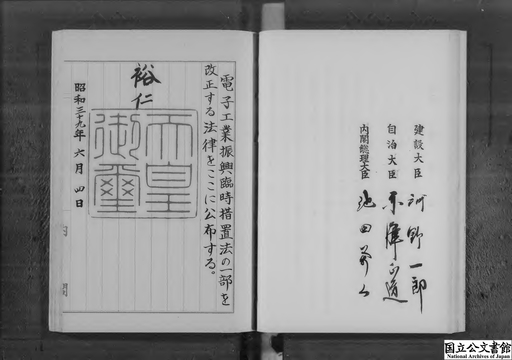 建設大臣 河野一郎
自治大臣 赤澤正道
内閣総理大臣 池田勇人
電子工業振興臨時措置法の一部を
改正する法律をここに公布する。
裕仁
天皇
御璽
昭和三十九年六月四日
内閣
国立公文書館
National Archives of Japan